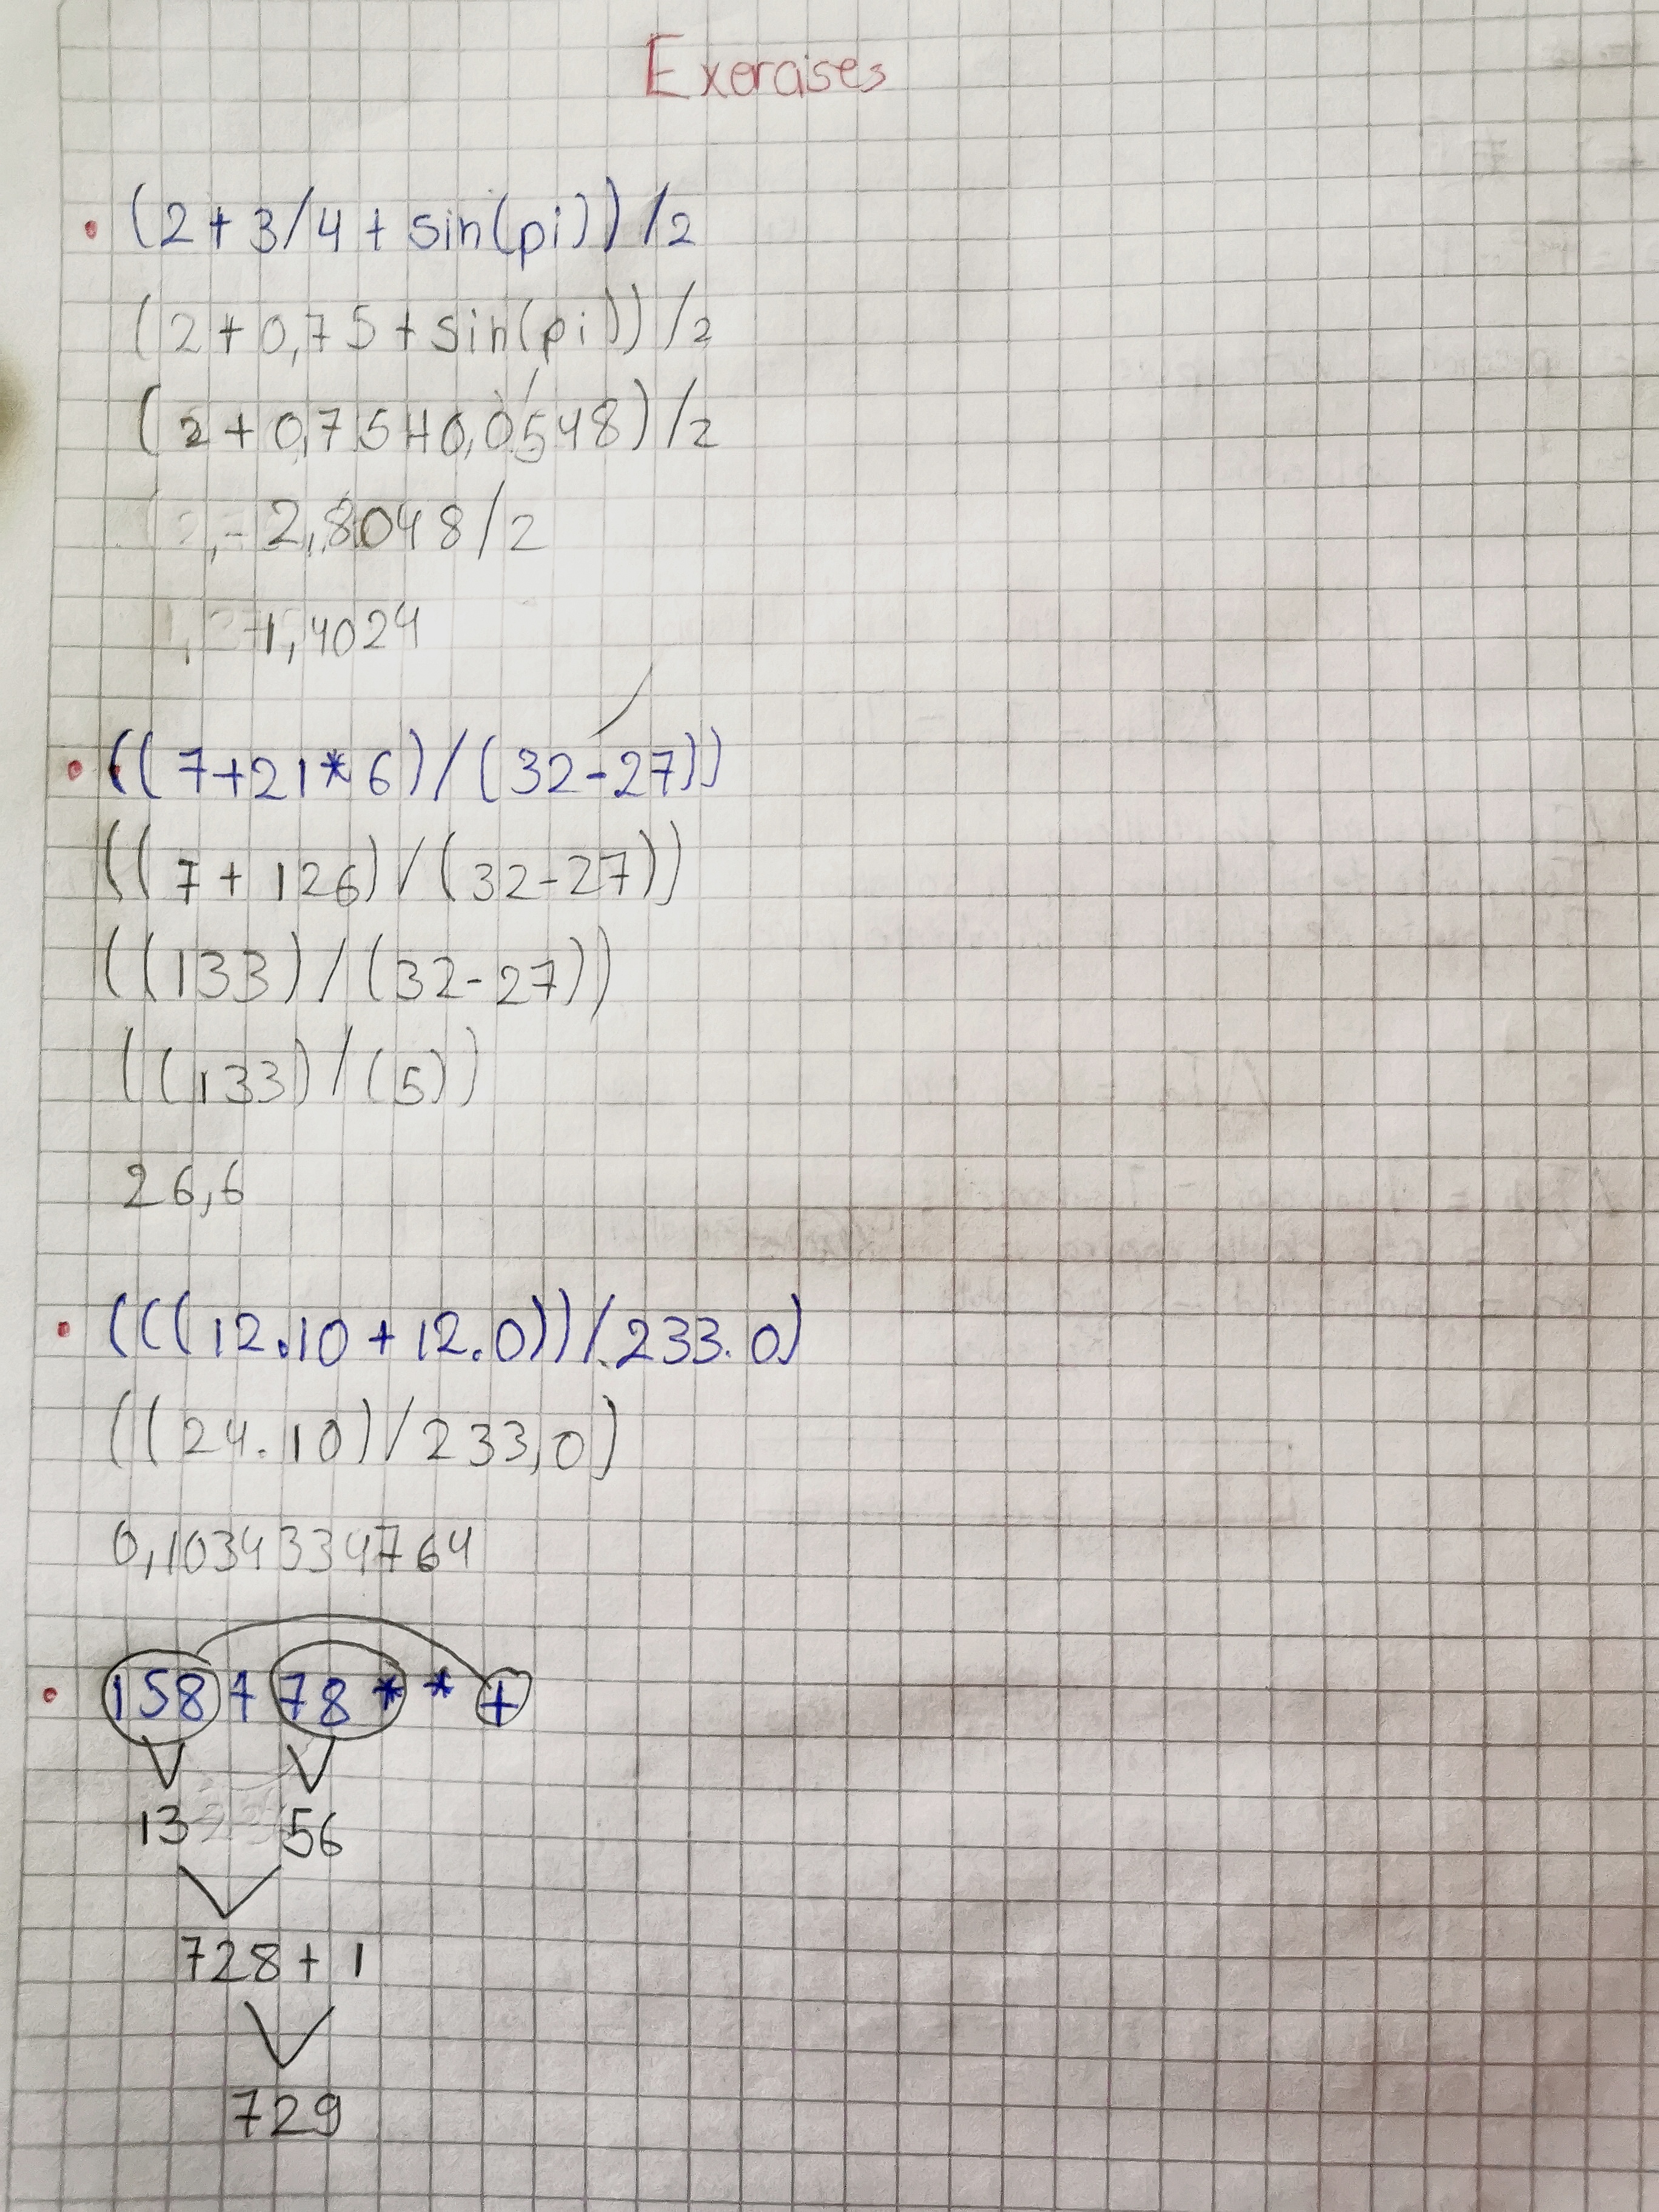 Exercises
(2+3/4+sin(pi))/2
(2+0,75+sin(pi))/2
(2+0,75+0,0548)/2
2,8048/2
1,4024
((7+21*6)/(32-27))
((7+126)/(32-27))
((133)/(32-27))
((133)/(5))
26,6
(((12.10+12.0))/233.0)
((24.10)/233,0)
0,10343334764
158+78**+
13 56
728+1
729